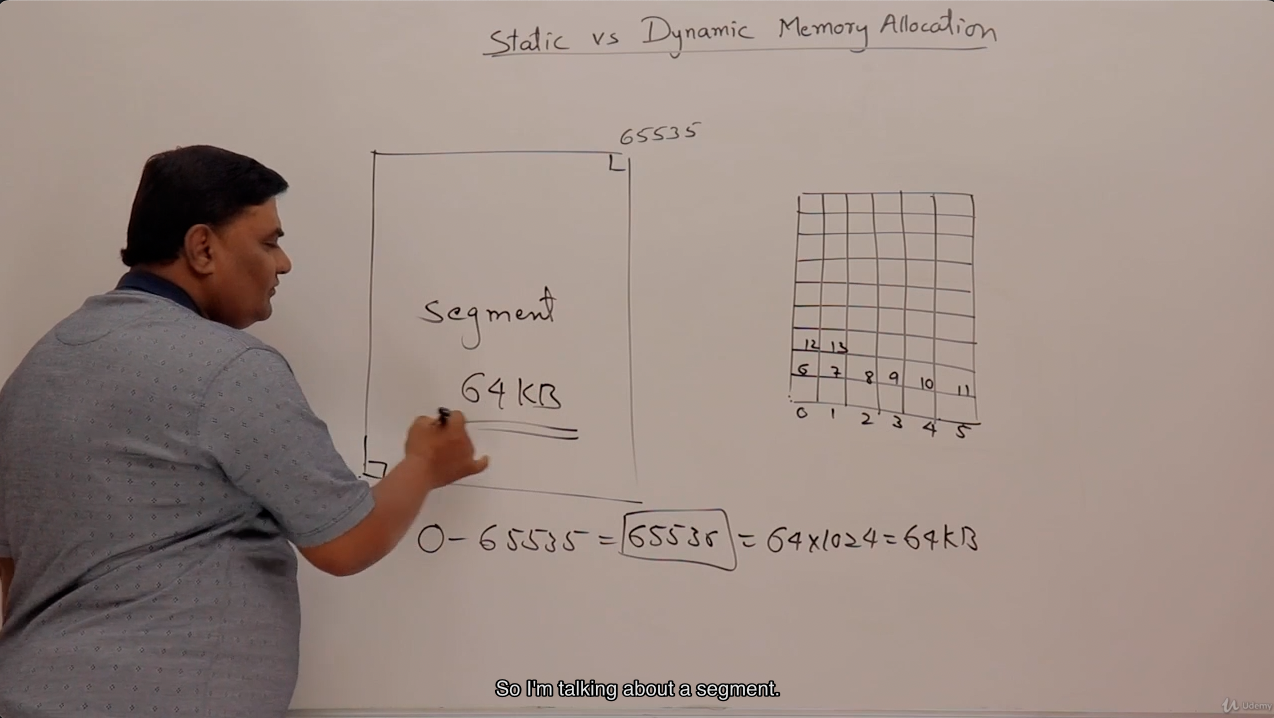 Static vs Dynamic Memory Allocation
65535
segment
64 KB
12 13
6 7 8 9 10 11
0 1 2 3 4 5
0 - 65535 = 65536 = 64x1024 = 64KB
So I'm talking about a segment.
Udemy